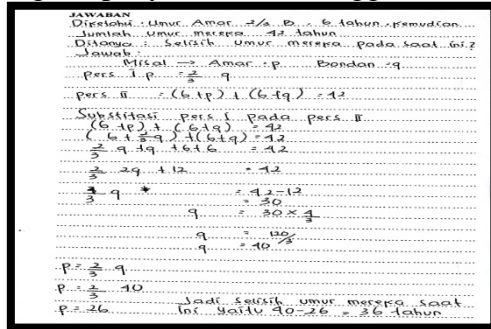 JAWABAN
Diketahui : Umur Amar 2/3 B. 6 tahun kemudian
Jumlah umur mereka 42 tahun
Ditanya : Selisih umur mereka pada saat ini?
Jawab :
Misal → Amar = p Bondan = q
Pers I p = 2/3 q
Pers II = (6+p) + (6+q) = 42
Substitasi pers I pada pers II
(6+p) + (6+q) = 42
(6+2/3q) + (6+q) = 42
2/3 q + q + 6 + 6 = 42
2/3 2q + 12 = 42
4/3 q = 42-12
= 30
q = 30 x 4/3
q = 120/3
q = 40
P = 2/3 q
P = 2/3 40
P = 26 Jadi selisih umur mereka saat
ini yaitu 40-26 = 36 tahun